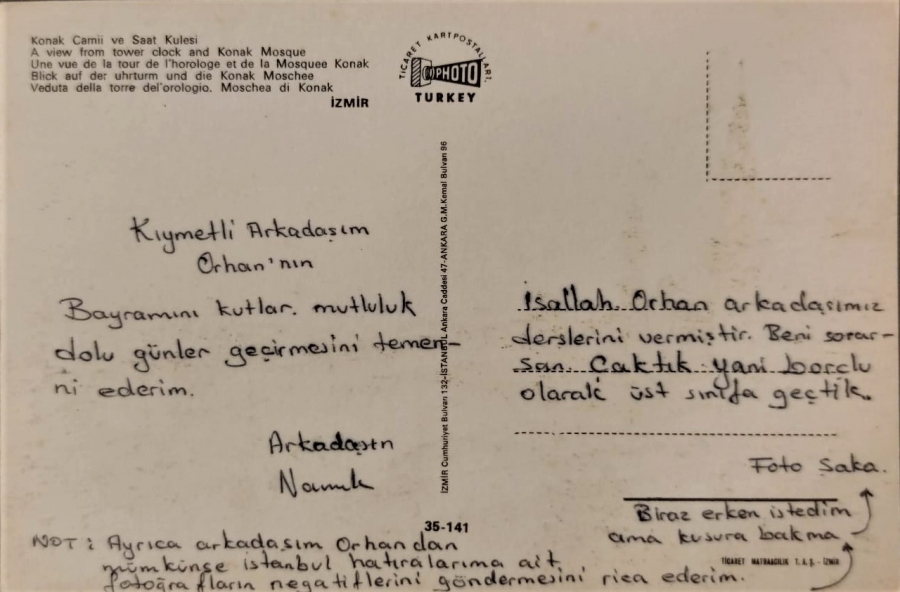 Konak Camii ve Saat Kulesi
A view from tower clock and Konak Mosque
Une vue de la tour de l'horologe et de la Mosquee Konak
Blick auf der uhrturm und die Konak Moschee
Veduta della torre del'orologio. Moschea di Konak
İZMİR
TİCARET KARTPOSTALLARI
PHOTO
TURKEY
Kıymetli Arkadaşım
Orhan'nın
Bayramını kutlar. mutluluk
dolu günler geçirmesini temen-
ni ederim.
Arkadaşın
Namık
NOT: Ayrıca arkadaşım Orhandan
mümkünse istanbul hatıralarıma ait
fotoğrafların negatiflerini göndermesini rica ederim.
35-141
İZMİR Cumhuriyet Bulvarı 132-İSTANBUL Ankara Caddesi 47-ANKARA G.M.Kemal Bulvarı 96
İsallah Orhan arkadaşımız
derslerini vermiştir. Beni sorar-
san. Çaktık yani borclu
olarak üst sınıfa geçtik.
Foto Şaka.
Biraz erken istedim
ama kusura bakma
TİCARET MATBAACILIK T.A.Ş.-İZMİR